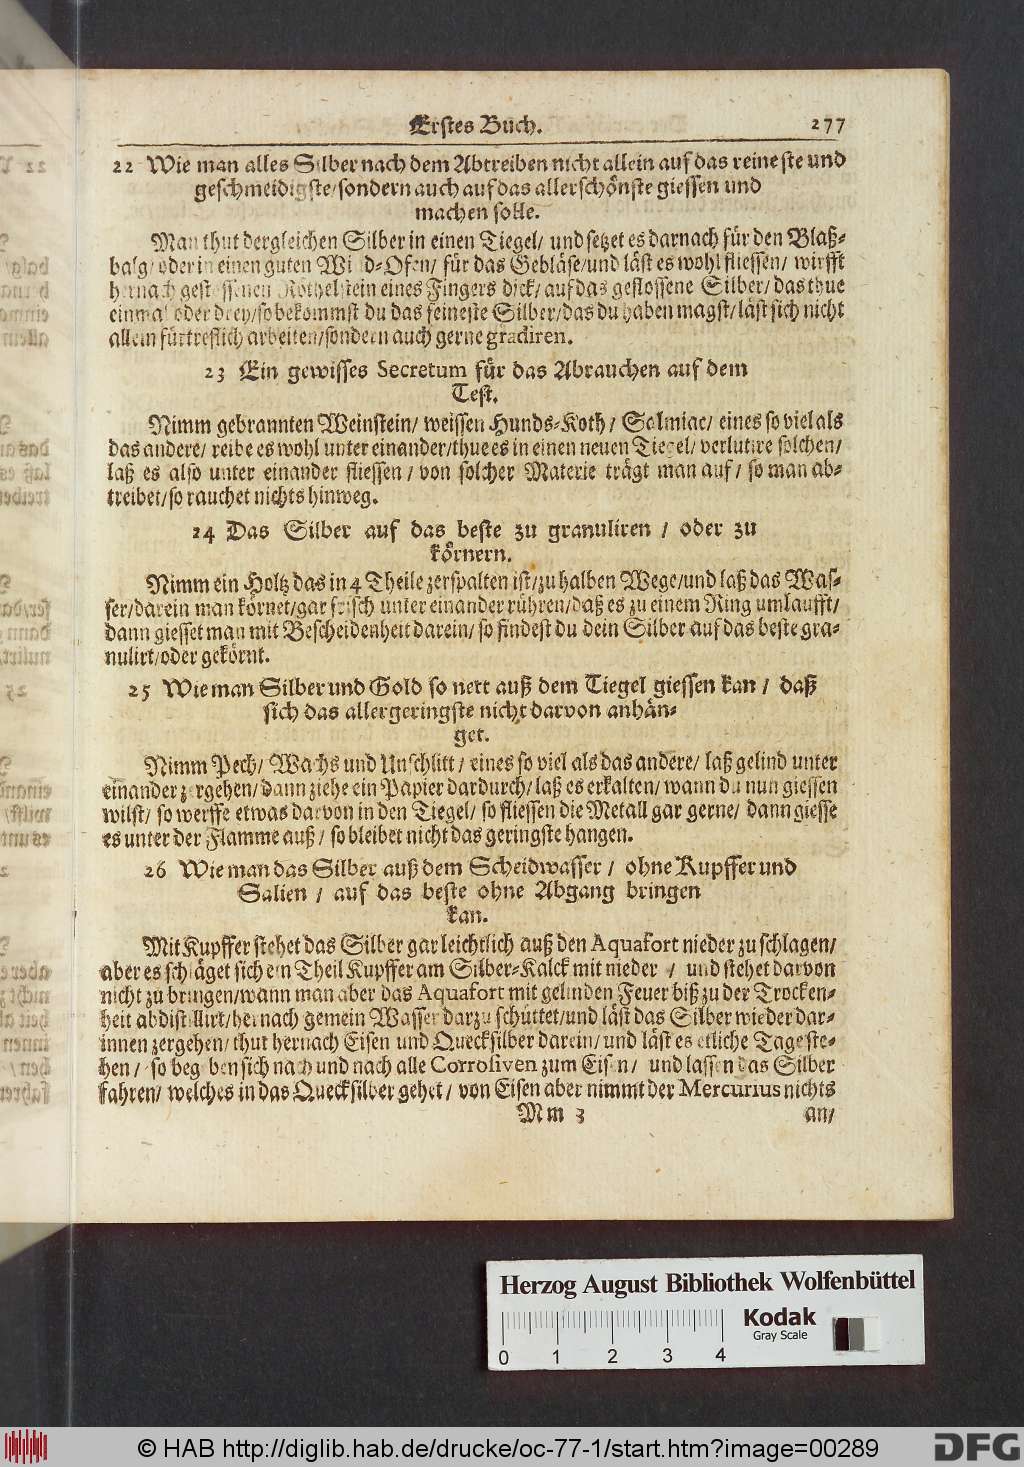 Erstes Buch. 277
22 Wie man alles Silber nach dem Abtreiben nicht allein auf das reineste und
geschmeidigste/ sondern auch auf das allerschönste giessen und
machen solle.
Man thut dergleichen Silber in einen Tiegel/ und setzet es darnach für den Blaß-
balg/ oder in einen guten Wind-Ofen/ für das Gebläse/ und läst es wohl fliessen/ wirfft
hernach gestossenen Röthelstein eines Fingers dick/ auf das geflossene Silber/ das thue
einmal oder drey/ so bekommst du das feineste Silber/ das du haben magst/ läst sich nicht
allein fürtreflich arbeiten/ sondern auch gerne gradiren.
23 Ein gewisses Secretum für das Abrauchen auf dem
Test.
Nimm gebrannten Weinstein/ weissen Hunds-Koth/ Salmiac/ eines so viel als
das andere/ reibe es wohl unter einander/ thue es in einen neuen Tiegel/ verlutire solchen/
laß es also unter einander fliessen/ von solcher Materie trägt man auf/ so man ab-
treibet/ so rauchet nichts hinweg.
24 Das Silber auf das beste zu granuliren / oder zu
körnern.
Nimm ein Holtz das in 4 Theile zerspalten ist/ zu halben Wege/ und laß das Was-
ser/ darein man körnet/ gar frisch unter einander rühren/ daß es zu einem Ring umlaufft/
dann giesset man mit Bescheidenheit darein/ so findest du dein Silber auf das beste gra-
nulirt/ oder gekörnt.
25 Wie man Silber und Gold so nett auß dem Tiegel giessen kan / daß
sich das allergeringste nicht darvon anhän-
get.
Nimm Pech/ Wachs und Unschlitt / eines so viel als das andere/ laß gelind unter
einander zergehen/ dann ziehe ein Papier dardurch/ laß es erkalten/ wann du nun giessen
wilst/ so werffe etwas darvon in den Tiegel/ so fliessen die Metall gar gerne/ dann giesse
es unter der Flamme auß/ so bleibet nicht das geringste hangen.
26 Wie man das Silber auß dem Scheidwasser / ohne Kupffer und
Salien / auf das beste ohne Abgang bringen
kan.
Mit Kupffer stehet das Silber gar leichtlich auß den Aquafort nieder zu schlagen/
aber es schläget sich ein Theil Kupffer am Silber-Kalck mit nieder / und stehet darvon
nicht zu bringen/ wann man aber das Aquafort mit gelinden Feuer biß zu der Trocken-
heit abdistillirt/ hernach gemein Wasser darzu schüttet/ und läst das Silber wieder dar-
innen zergehen/ thut hernach Eisen und Quecksilber darein/ und läst es etliche Tage ste-
hen/ so begeben sich nach und nach alle Corrosiven zum Eisen/ und lassen das Silber
fahren/ welches in das Quecksilber gehet/ von Eisen aber nimmt der Mercurius nichts
Mm 3 an/
Herzog August Bibliothek Wolfenbüttel
Kodak
Gray Scale
0 1 2 3 4
© HAB http://diglib.hab.de/drucke/oc-77-1/start.htm?image=00289
DFG